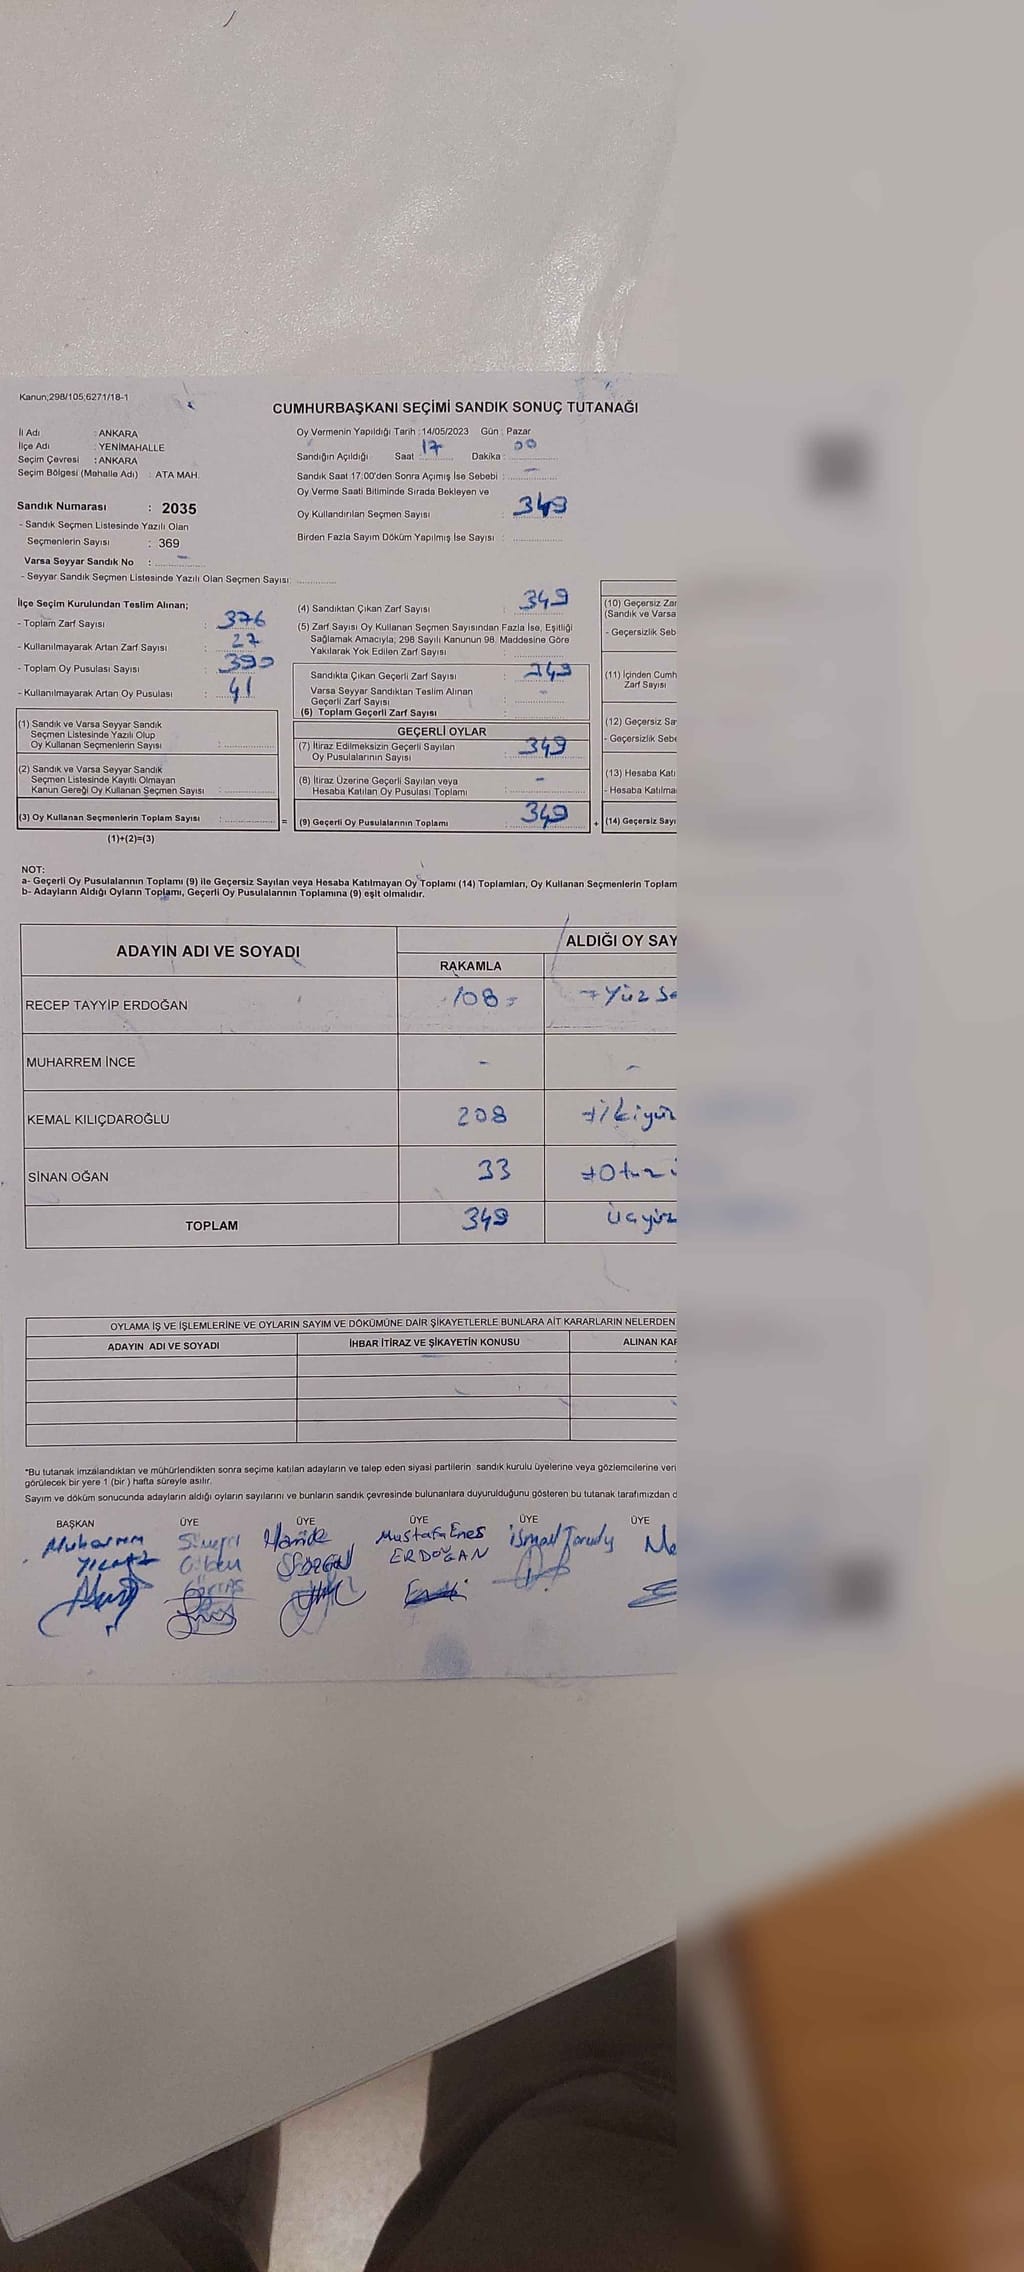 Kanun;298/105;6271/18-1
CUMHURBAŞKANI SEÇİMİ SANDIK SONUÇ TUTANAĞI
İl Adı : ANKARA
İlçe Adı : YENİMAHALLE
Seçim Çevresi : ANKARA
Seçim Bölgesi (Mahalle Adı) : ATA MAH.
Sandık Numarası : 2035
- Sandık Seçmen Listesinde Yazılı Olan
Seçmenlerin Sayısı : 369
Varsa Seyyar Sandık No : -
- Seyyar Sandık Seçmen Listesinde Yazılı Olan Seçmen Sayısı:
Oy Vermenin Yapıldığı Tarih :14/05/2023 Gün : Pazar
Sandığın Açıldığı Saat : 17 Dakika : 00
Sandık Saat 17:00'den Sonra Açımış İse Sebebi : -
Oy Verme Saati Bitiminde Sırada Bekleyen ve
Oy Kullandırılan Seçmen Sayısı : 349
Birden Fazla Sayım Döküm Yapılmış İse Sayısı :
İlçe Seçim Kurulundan Teslim Alınan;
- Toplam Zarf Sayısı : 376
- Kullanılmayarak Artan Zarf Sayısı : 27
- Toplam Oy Pusulası Sayısı : 390
- Kullanılmayarak Artan Oy Pusulası : 41
(1) Sandık ve Varsa Seyyar Sandık
Seçmen Listesinde Yazılı Olup
Oy Kullanan Seçmenlerin Sayısı :
(2) Sandık ve Varsa Seyyar Sandık
Seçmen Listesinde Kayıtlı Olmayan
Kanun Gereği Oy Kullanan Seçmen Sayısı :
(3) Oy Kullanan Seçmenlerin Toplam Sayısı : =
(1)+(2)=(3)
(4) Sandıktan Çıkan Zarf Sayısı : 349
(5) Zarf Sayısı Oy Kullanan Seçmen Sayısından Fazla İse, Eşitliği
Sağlamak Amacıyla; 298 Sayılı Kanunun 98. Maddesine Göre
Yakılarak Yok Edilen Zarf Sayısı :
Sandıkta Çıkan Geçerli Zarf Sayısı : 349
Varsa Seyyar Sandıktan Teslim Alınan
Geçerli Zarf Sayısı : -
(6) Toplam Geçerli Zarf Sayısı :
GEÇERLİ OYLAR
(7) İtiraz Edilmeksizin Geçerli Sayılan
Oy Pusulalarının Sayısı : 349
(8) İtiraz Üzerine Geçerli Sayılan veya
Hesaba Katılan Oy Pusulası Toplamı : -
(9) Geçerli Oy Pusulalarının Toplamı : 349 +
(10) Geçersiz Zar
(Sandık ve Varsa
- Geçersizlik Seb
(11) İçinden Cumh
Zarf Sayısı
(12) Geçersiz Sa
- Geçersizlik Sebe
(13) Hesaba Katı
- Hesaba Katılma
(14) Geçersiz Sayı
NOT:
a- Geçerli Oy Pusulalarının Toplamı (9) ile Geçersiz Sayılan veya Hesaba Katılmayan Oy Toplamı (14) Toplamları, Oy Kullanan Seçmenlerin Toplam
b- Adayların Aldığı Oyların Toplamı, Geçerli Oy Pusulalarının Toplamına (9) eşit olmalıdır.
ADAYIN ADI VE SOYADI
ALDIĞI OY SAY
RAKAMLA
RECEP TAYYİP ERDOĞAN 108 Yüz Se
MUHARREM İNCE - -
KEMAL KILIÇDAROĞLU 208 İkiyüz
SİNAN OĞAN 33 Otuz
TOPLAM 349 Üçyüz
OYLAMA İŞ VE İŞLEMLERİNE VE OYLARIN SAYIM VE DÖKÜMÜNE DAİR ŞİKAYETLERLE BUNLARA AİT KARARLARIN NELERDEN
ADAYIN ADI VE SOYADI İHBAR İTİRAZ VE ŞİKAYETİN KONUSU ALINAN KAR
*Bu tutanak imzalandıktan ve mühürlendikten sonra seçime katılan adayların ve talep eden siyasi partilerin sandık kurulu üyelerine veya gözlemcilerine veri
görülecek bir yere 1 (bir ) hafta süreyle asılır.
Sayım ve döküm sonucunda adayların aldığı oyların sayılarını ve bunların sandık çevresinde bulunanlara duyurulduğunu gösteren bu tutanak tarafımızdan d
BAŞKAN ÜYE ÜYE ÜYE ÜYE ÜYE
Muharrem Hanide Mustafa Enes İsmail
ERDOĞAN